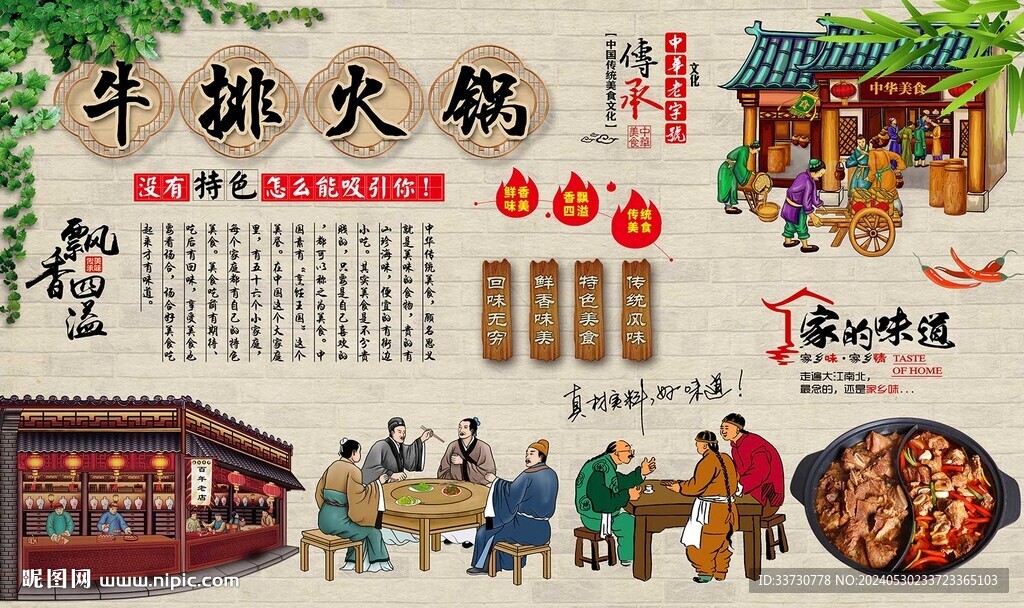 牛排火锅
没有特色怎么能吸引你！
【中国传统美食文化】
傳承
中華美食
中華老字號
文化
中华美食
鲜香味美
香飘四溢
传统美食
飘香四溢
美味传承
中华传统美食，顾名思义
就是美味的食物，贵的有
山珍海味，便宜的有街边
小吃。其实美食是不分贵
贱的，只要是自己喜欢的
，都可以称之为美食。中
国素有“烹饪王国”这个
美誉。在中国这个大家庭
里，有五十六个小家庭，
每个家庭都有自己的特色
美食。美食吃前有期待、
吃后有回味，享受美食也
要看场合，场合好美食吃
起来才有味道。
回味无穷
鲜香味美
特色美食
传统风味
家的味道
家乡味·家乡情
TASTE
OF HOME
走遍大江南北，
最念的，还是家乡味...
真材实料，好味道！
百年老店
昵图网 www.nipic.com
ID:33730778 NO:20240530233723365103